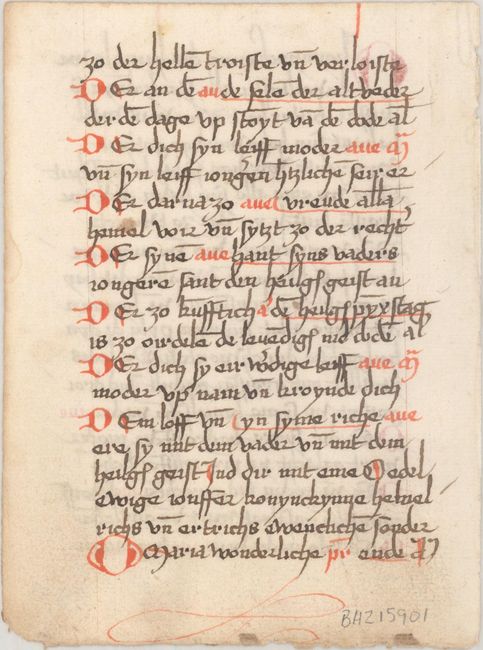 zo der hellē troiste vn̄ verloiste
DEr an dē aue de selē der altveder
der dē dage vp stoyt vā dē dode al
DEr dich syn leiff moder aue m̄
vn̄ syn leiff iongēn htzlichen seir er
DEr darna zo aue vreude allā
hemel voir vn̄ sytzt zo der recht
DEr synē aue hant syns vaders
iongerē sant den heilgē geist an
DEr zo kūfftich dē heilgē pyxstag
is zo oirdelē de levēdigē ind dodē al
DEr dich sy eir wdige leiff aue m̄
moder vp nam vn̄ kroynde dich
DEm loff vn̄ yn syme riche aue
ere sy mit dem vader vn̄ mit dem
heilgē geist Ind dir mit eme O edel
ewige iouffer konynckynne hemel
richs vn̄ ertrichs ewenclichē sonder
O Maria wonderliche pr̄ ende am̄
BHZ15901